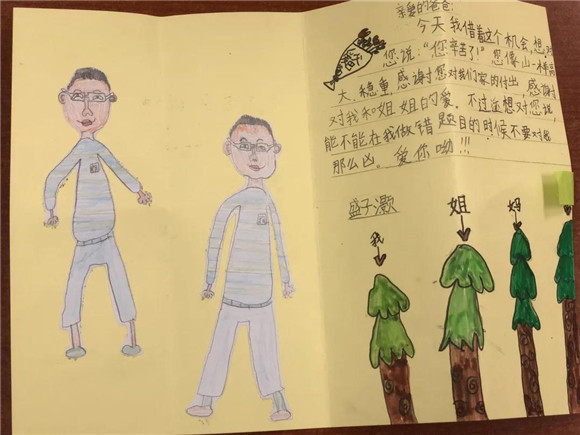 亲爱的爸爸:
今天我借着这个机会,想对
您说:“您辛苦了!”您像山一样高
大、稳重,感谢对您对我们家的付出,感谢
对我和姐姐的爱。不过还想对您说,
能不能在我做错题目的时候不要对我
那么凶。爱你呦!!!
盛子灏
我 姐 妈